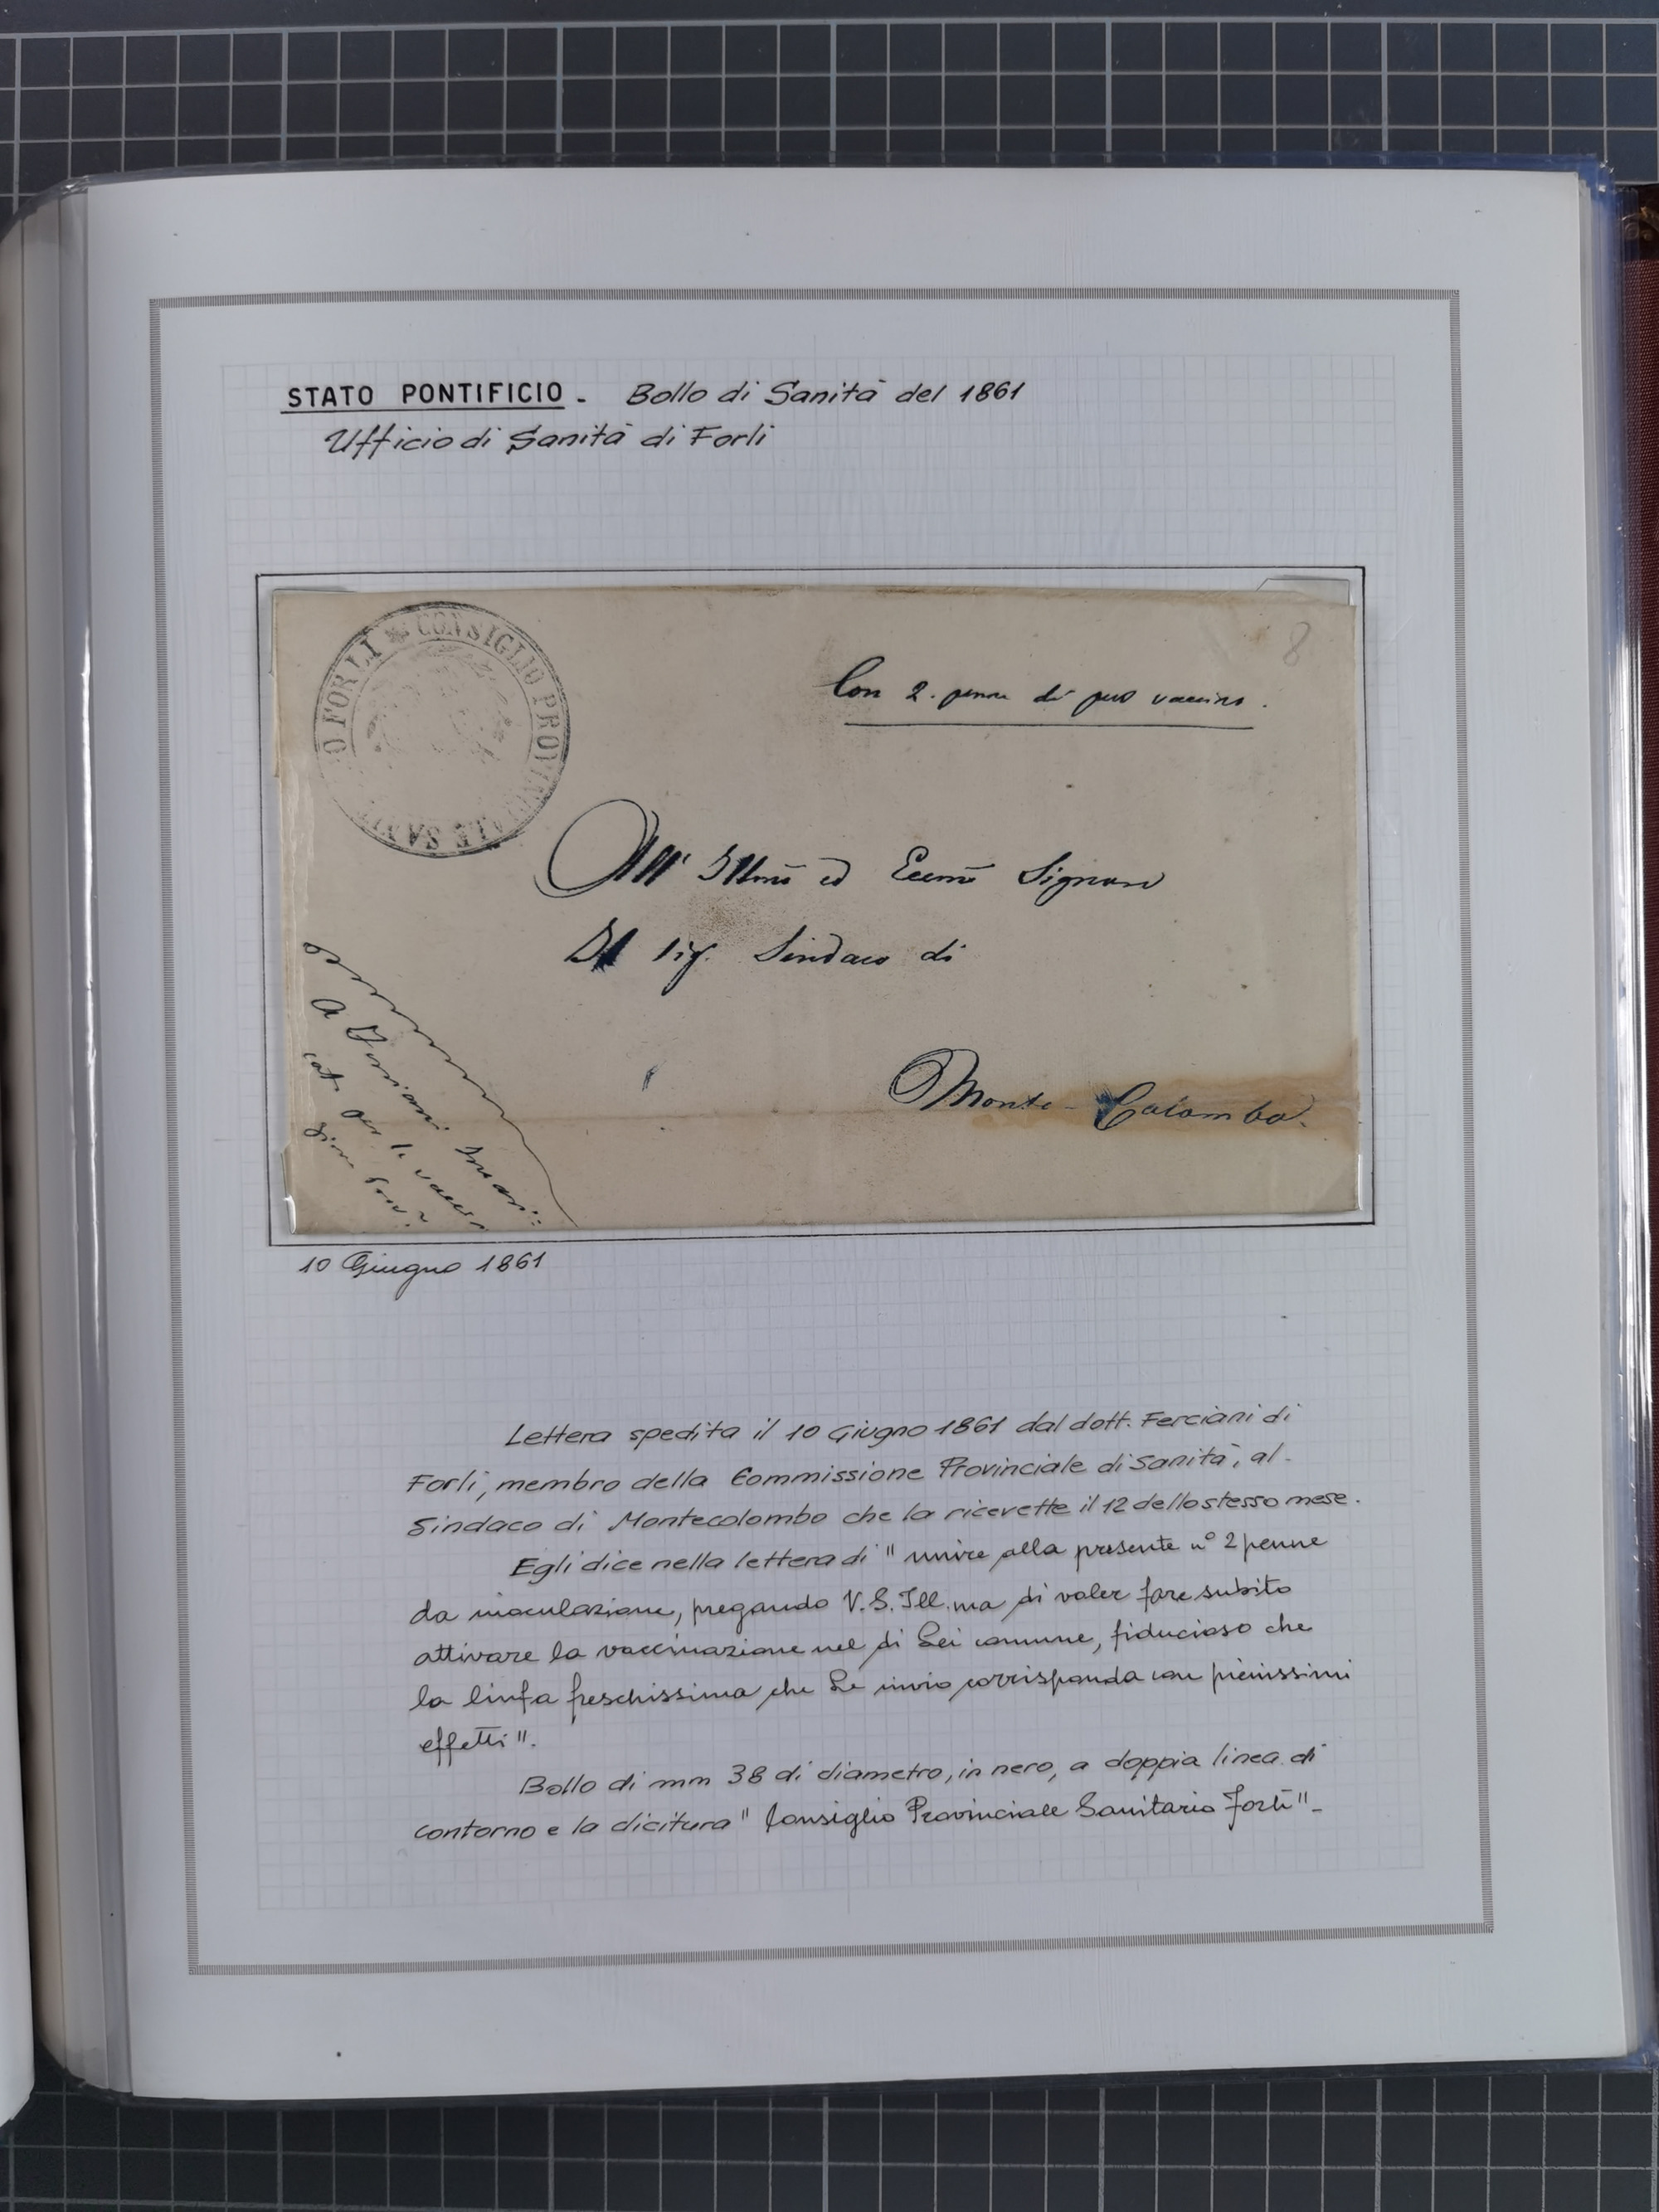 STATO PONTIFICIO - Bollo di Sanità del 1861
Ufficio di Sanità di Forlì
O FORLI * CONSIGLIO PROVINCIALE SANIT
8
Con 2. penne di pus vaccino.
All' Illmo ed Eccmo Signore
Il Sig. Sindaco di
Monte-Colombo.
A
per la vacci
10 Giugno 1861
Lettera spedita il 10 Giugno 1861 dal dott. Ferciani di
Forlì, membro della Commissione Provinciale di Sanità, al
Sindaco di Montecolombo che la ricevette il 12 dello stesso mese.
Egli dice nella lettera di " unire alla presente n° 2 penne
da inoculazione, pregando V.S. Ill.ma di voler fare subito
attivare la vaccinazione nel di Lei comune, fiducioso che
la linfa freschissima che Le invio corrisponda con pienissimi
effetti".
Bollo di mm 38 di diametro, in nero, a doppia linea di
contorno e la dicitura " Consiglio Provinciale Sanitario Forlì"-